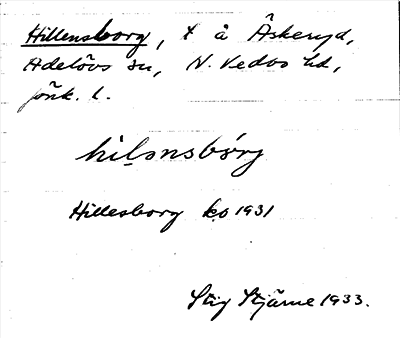 Hillensborg, t å Åskeryd,
Adelövs sn, N. Vedbo hd,
Jönk. l.
hilənsbórj
Hillesborg ko 1931
Stig Stjärne 1933.